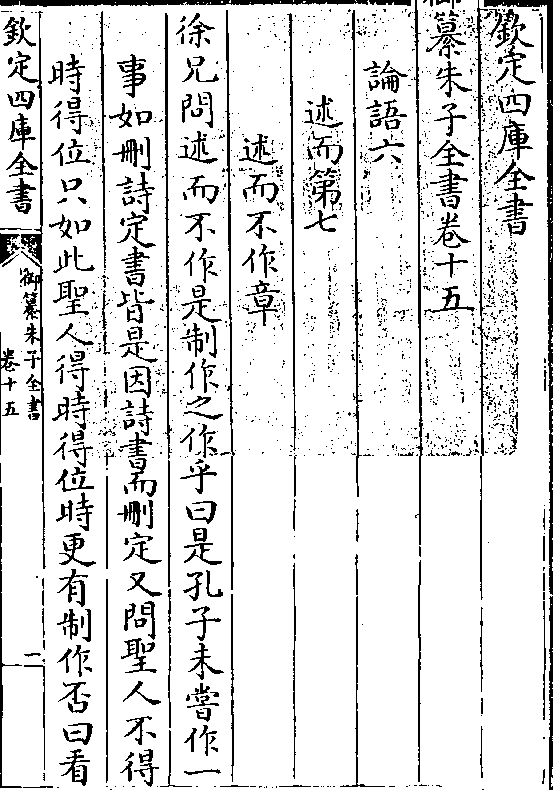 欽定四庫全書
御纂朱子全書卷十五
論語六
述而第七
述而不作章
徐兄問述而不作是制作之作乎曰是孔子未嘗作一
事如刪詩定書皆是因詩書而刪定又問聖人不得
時得位只如此聖人得時得位時更有制作否曰看
欽定四庫全書
御纂朱子全書
卷十五
一